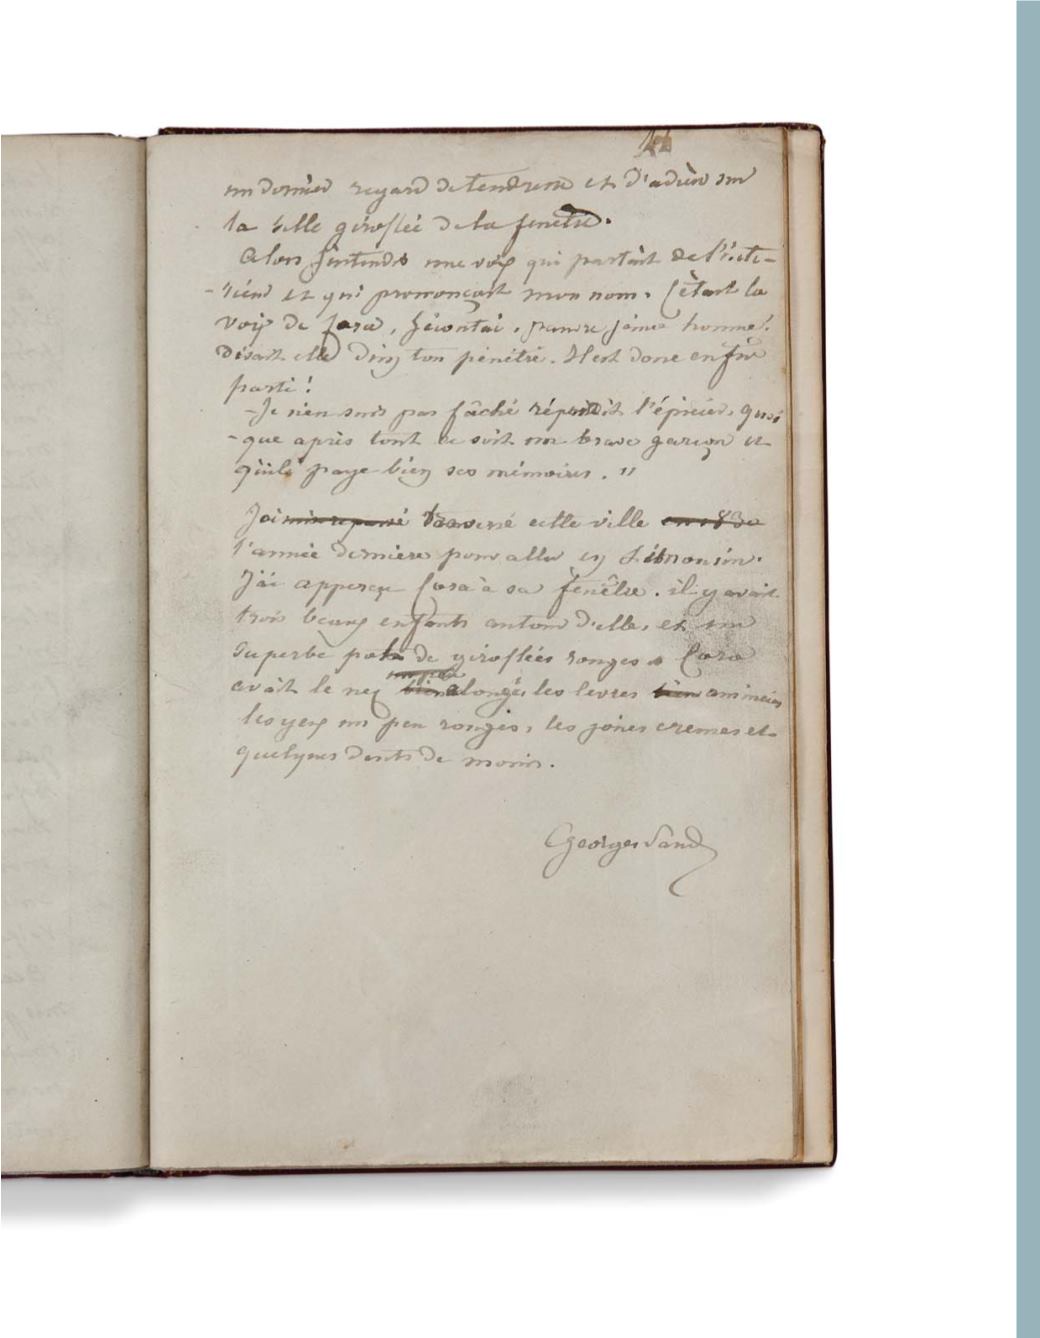 un dernier regard de tendresse et d'adieu sur
la belle giroflée de la fenêtre.
Alors j'entendis une voix qui partait de l'inté-
-rieur et qui prononçait mon nom. C'était la
voix de Cora, J'écoutai, pauvre jeune homme!
disait elle d'un ton pénétré. Il est donc enfin
parti!
-Je n'en suis pas fâché répondit l'épicier, quoi
-que après tout ce soit un brave garçon et
qu'il paye bien ses mémoires."
J'ai traversé cette ville en 1830
l'année dernière pour aller en Limousin.
J'ai apperçu Cora à sa fenêtre. il y avait
trois beaux enfants autour d'elle, et un
superbe pot de giroflées rouges. Cora
un peu
avait le nez bien alongé, les levres bien amincies
les yeux un peu rouges, les joues creuses et
quelques dents de moins.
Georges Sand